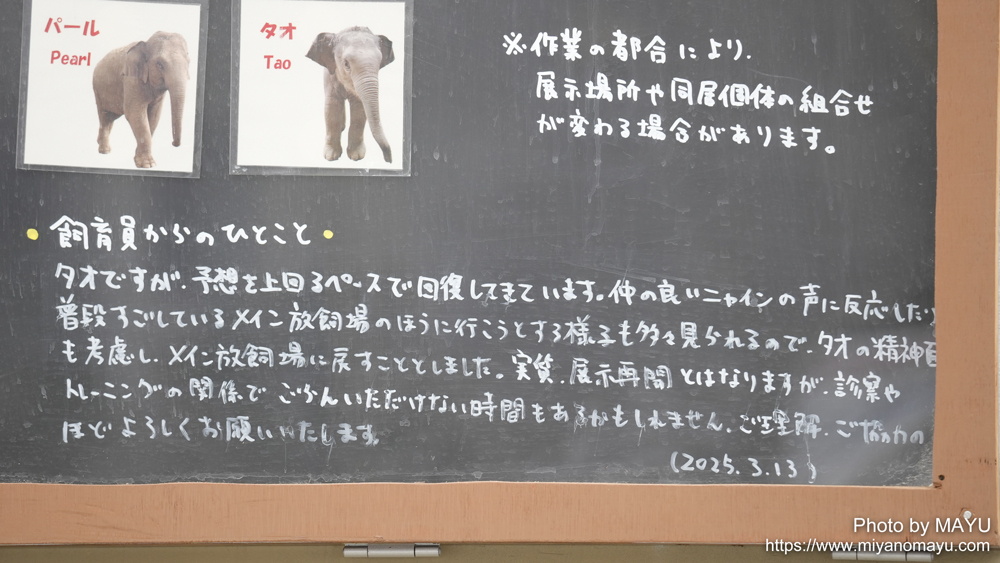 パール
Pearl
タオ
Tao
※作業の都合により、
展示場所や同居個体の組合せ
が変わる場合があります。
• 飼育員からのひとこと •
タオですが、予想を上回るペースで回復してきています。仲の良いニャインの声に反応した
普段すごしているメイン放飼場のほうに行こうとする様子も多々見られるので、タオの精神
も考慮し、メイン放飼場に戻すこととしました。実質、展示再開とはなりますが、診察や
トレーニングの関係でごらんいただけない時間もあるかもしれません。ご理解、ご協力の
ほどよろしくお願いいたします。
(2025.3.13)
Photo by MAYU
https://www.miyanomayu.com/